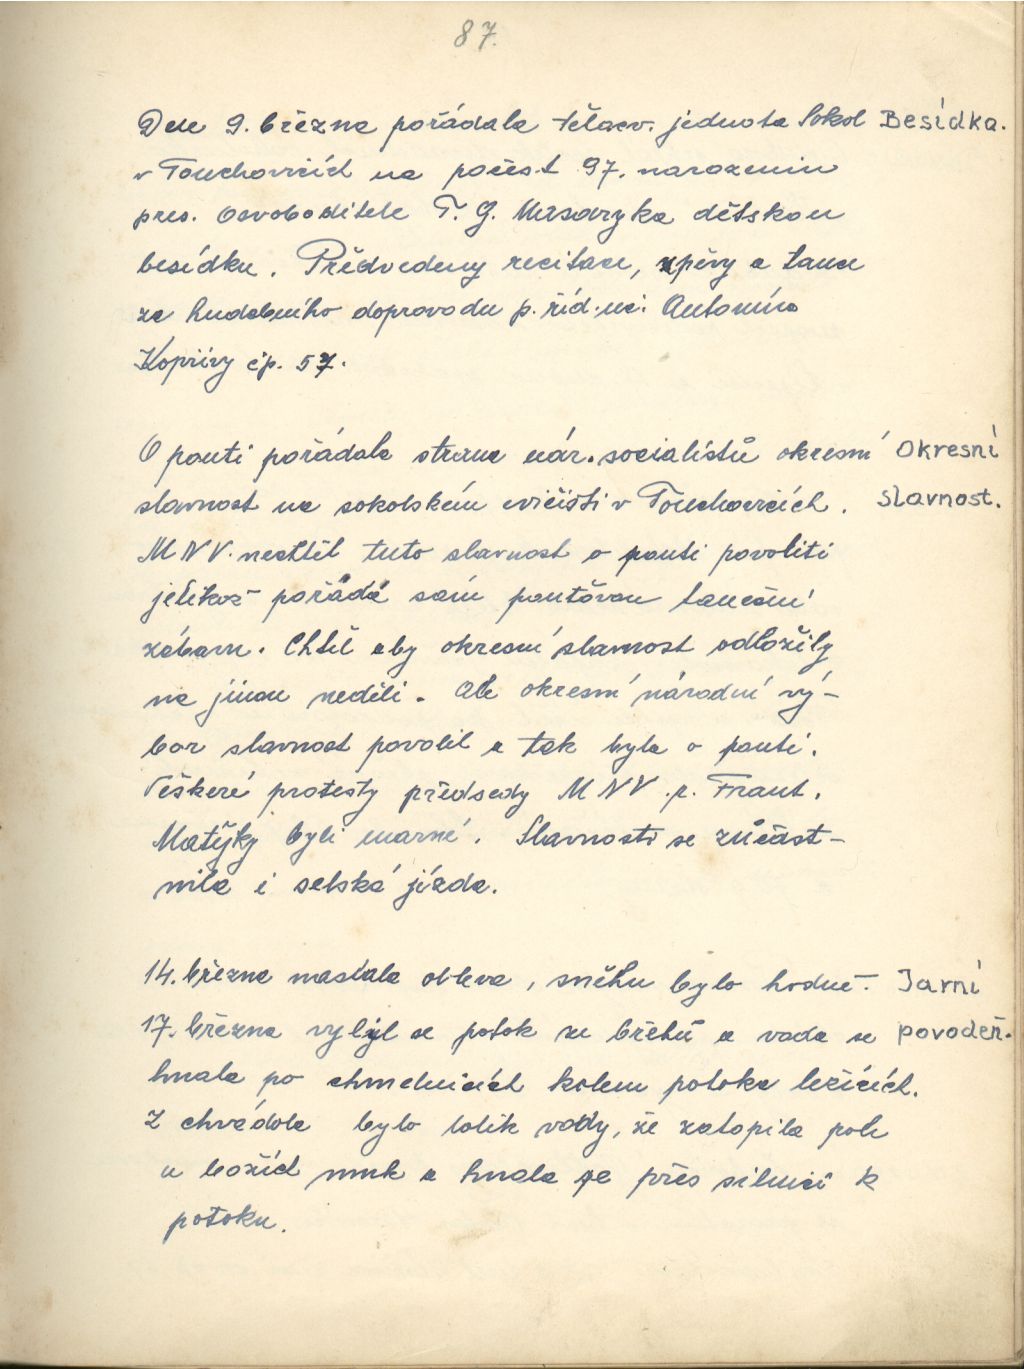 87.
Dne 9. března pořádala tělocv. jednota Sokol Besídka.
v Touchovicích na počest 97. narozenin
pres. Osvoboditele T. G. Masaryka dětskou
besídku. Předvedeny recitace, zpěvy a tance
za hudebního doprovodu p. říd. uč. Antonína
Kopřivy čp. 57.
O pouti pořádala strana nár. socialistů okresní Okresní
slavnost na sokolském cvičišti v Touchovicích. slavnost.
MNV. nechtěl tuto slavnost o pouti povoliti
jelikož pořádá sám pouťovou taneční
zábavu. Chtěl aby okresní slavnost odložily
na jinou neděli. Ale okresní národní vý-
bor slavnost povolil a tak byla o pouti.
Veškeré protesty předsedy MNV. p. Frant.
Matějky byli marné. Slavnosti se zúčast-
nila i selská jízda.
14. března nastala obleva, sněhu bylo hodně. Jarní
17. března vylyl se potok ze břehů a voda se povodeň.
hnala po chmelnicích kolem potoka ležících.
Z chvádola bylo tolik vody, že zatopila pole
u božích muk a hnala se přes silnici k
potoku.